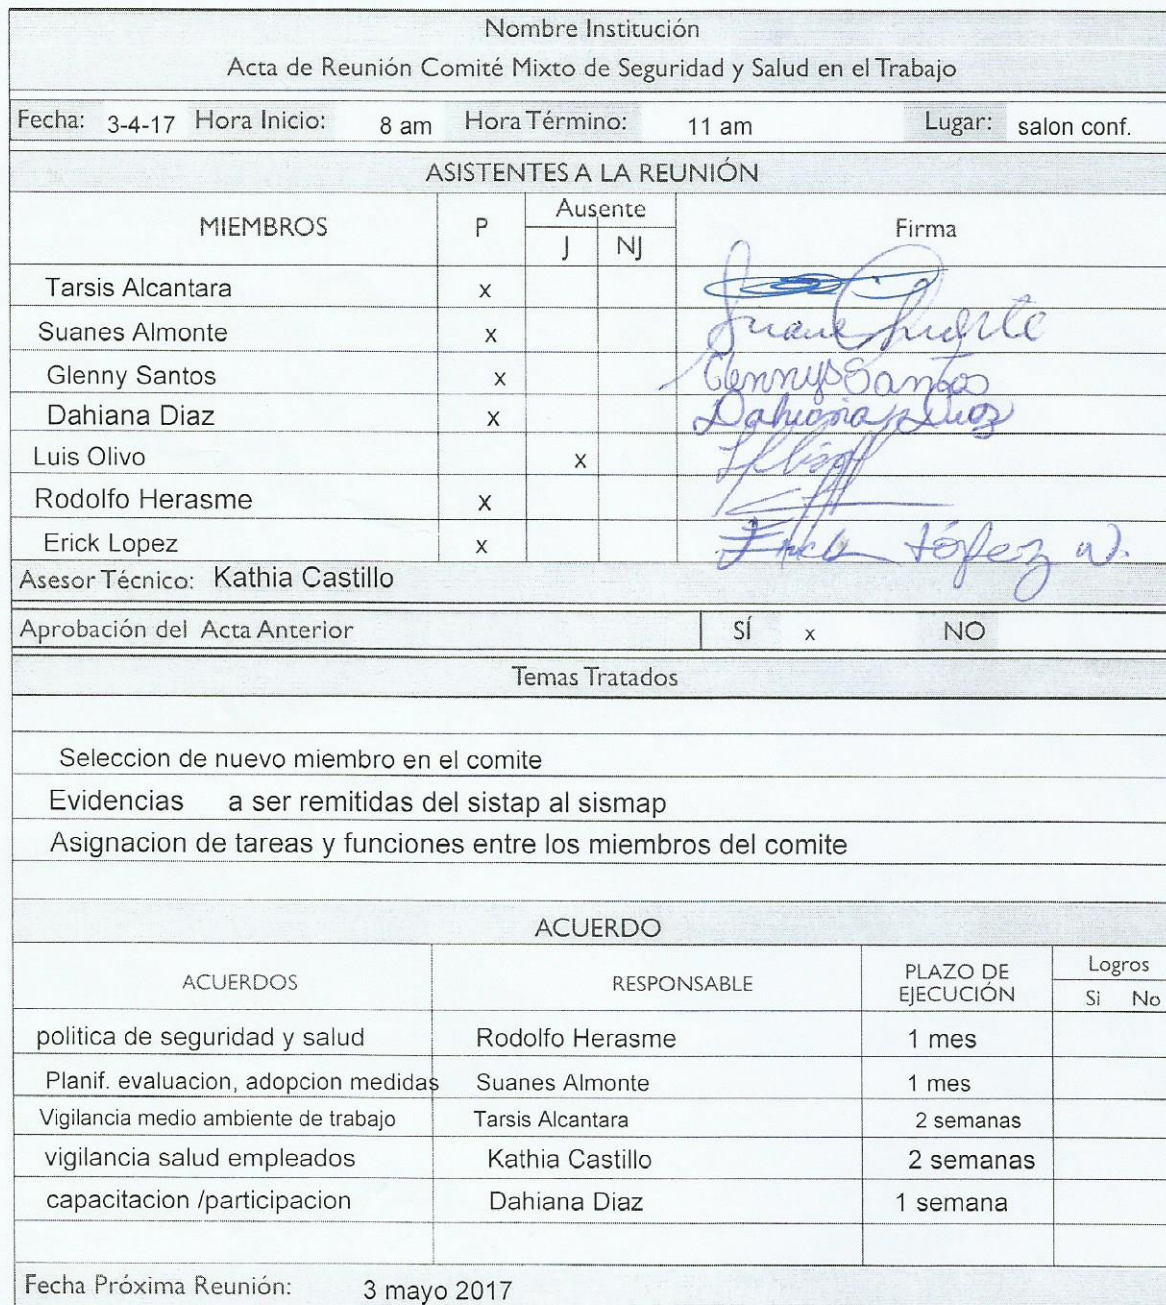 Nombre Institución
Acta de Reunión Comité Mixto de Seguridad y Salud en el Trabajo
Fecha: 3-4-17 Hora Inicio: 8 am Hora Término: 11 am Lugar: salon conf.
ASISTENTES A LA REUNIÓN
MIEMBROS P Ausente Firma
J NJ
Tarsis Alcantara x
Suanes Almonte x
Glenny Santos x Glennys Santos
Dahiana Diaz x Dahiana Diaz
Luis Olivo x
Rodolfo Herasme x
Erick Lopez x Erick López W.
Asesor Técnico: Kathia Castillo
Aprobación del Acta Anterior SÍ x NO
Temas Tratados
Seleccion de nuevo miembro en el comite
Evidencias a ser remitidas del sistap al sismap
Asignacion de tareas y funciones entre los miembros del comite
ACUERDO
ACUERDOS RESPONSABLE PLAZO DE EJECUCIÓN Logros
Si No
politica de seguridad y salud Rodolfo Herasme 1 mes
Planif. evaluacion, adopcion medidas Suanes Almonte 1 mes
Vigilancia medio ambiente de trabajo Tarsis Alcantara 2 semanas
vigilancia salud empleados Kathia Castillo 2 semanas
capacitacion /participacion Dahiana Diaz 1 semana
Fecha Próxima Reunión: 3 mayo 2017